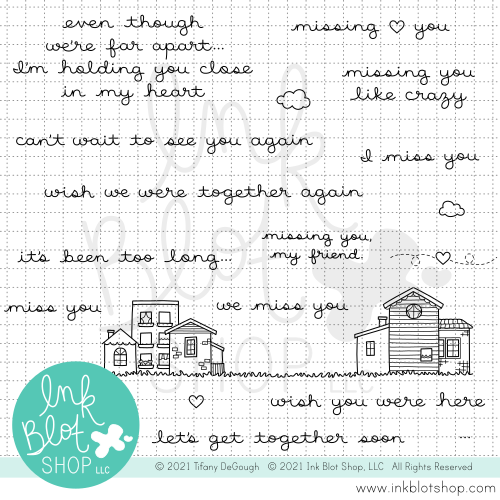 even though
we're far apart...
I'm holding you close
in my heart
missing ♡ you
missing you
like crazy
can't wait to see you again
I miss you
wish we were together again
missing you,
my friend.
it's been too long...
miss you
we miss you
wish you were here
let's get together soon
...
Ink
Blot
SHOP LLC
Ink
Blot
SHOP LLC
© 2021 Tifany DeGough © 2021 Ink Blot Shop, LLC All Rights Reserved
www.inkblotshop.com